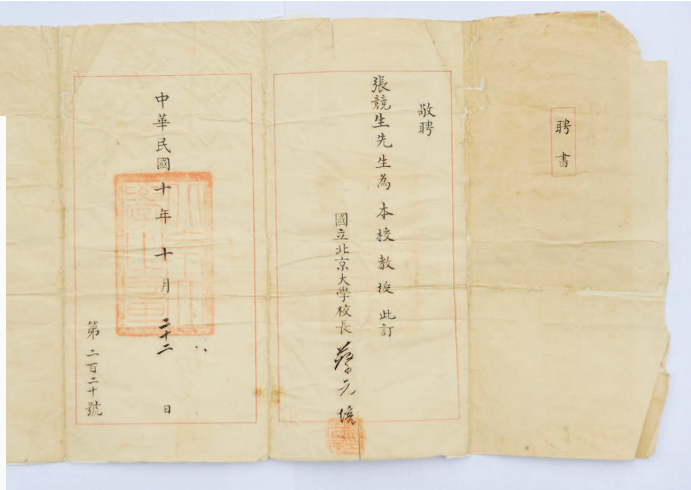 聘書
敬聘
張競生先生為本校教授此訂
國立北京大學校長蔡元培
中華民國十年十月二十二日
第二百二十號